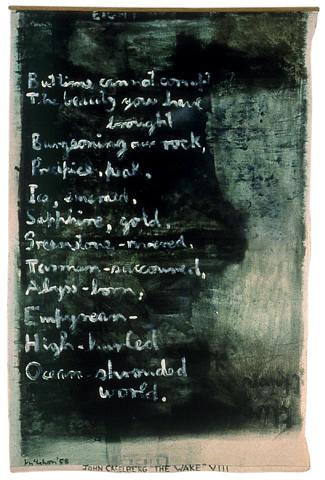 EIGHT
But time cannot corrupt
The beauty you have
brought
Burgeoning our rock,
Pacific, peak,
Ice, emerald,
Sapphire, gold,
Greenstone-rivered,
Tasman-succoured,
Abyss-born,
Empyrean-
High-hurled
Ocean-shrouded
world.
McCahon '58
JOHN CASELBERG THE WAKE" VIII